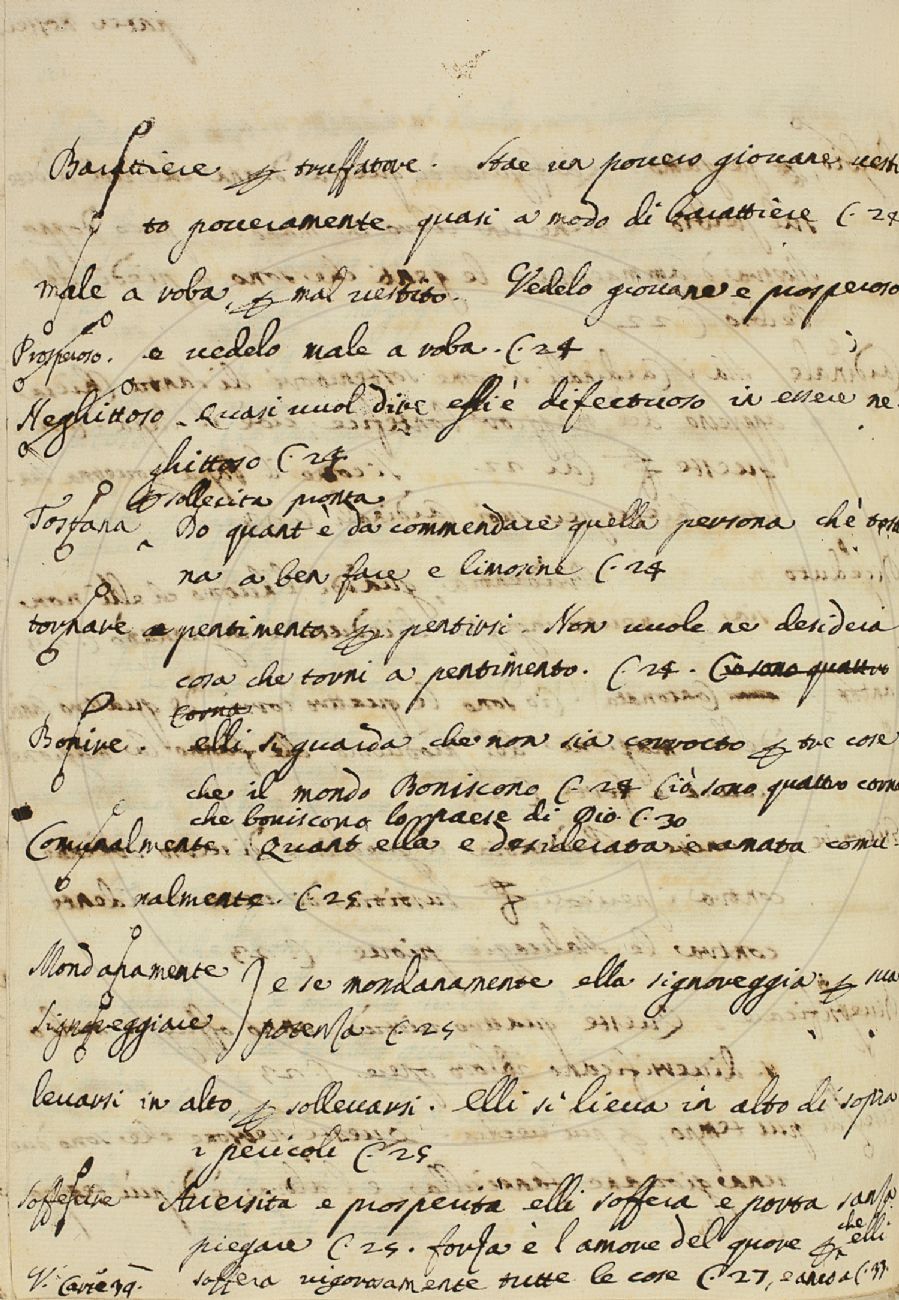 Barattiere per truffatore. Stae un povero giovane vesti
to poveramente quasi a modo di barattiere C. 24
male a roba per mal vestito. Vedelo giovane e prosperoso
Prosperoso. e vedelo male a roba. C. 24
Neghittoso. Quasi vuol dire elli è difectuoso in essere ne
ghittoso C. 24
sollecita pronta
Tostana Do quant'è da commendare quella persona ch'è tosta
na a ben fare e limosine C. 24
tornare a pentimento per pentirsi. Non vuole ne desidera
cosa che torni a pentimento. C. 24. Ciò sono quattro
corna
Bonire. elli si guarda che non sia corrocto per tre cose
che il mondo Boniscono C. 24 Ciò sono quattro corna
che boniscono lo paese di Dio C. 30
Comunalmente Quant ella e desiderata e amata comu
nalmente. C. 25
Mondanamente e se mondanamente ella signoreggia per sua
signoreggiare potensa C. 25
levarsi in alto per sollevarsi. Elli si lieva in alto di sopra
i pericoli C. 25
sofferire Aversita e prosperita elli soffera e porta sansa
piegare C. 25. forsa è l amore del quore per che elli
V. Carte 39. soffera vigorosamente tutte le cose C. 27, e